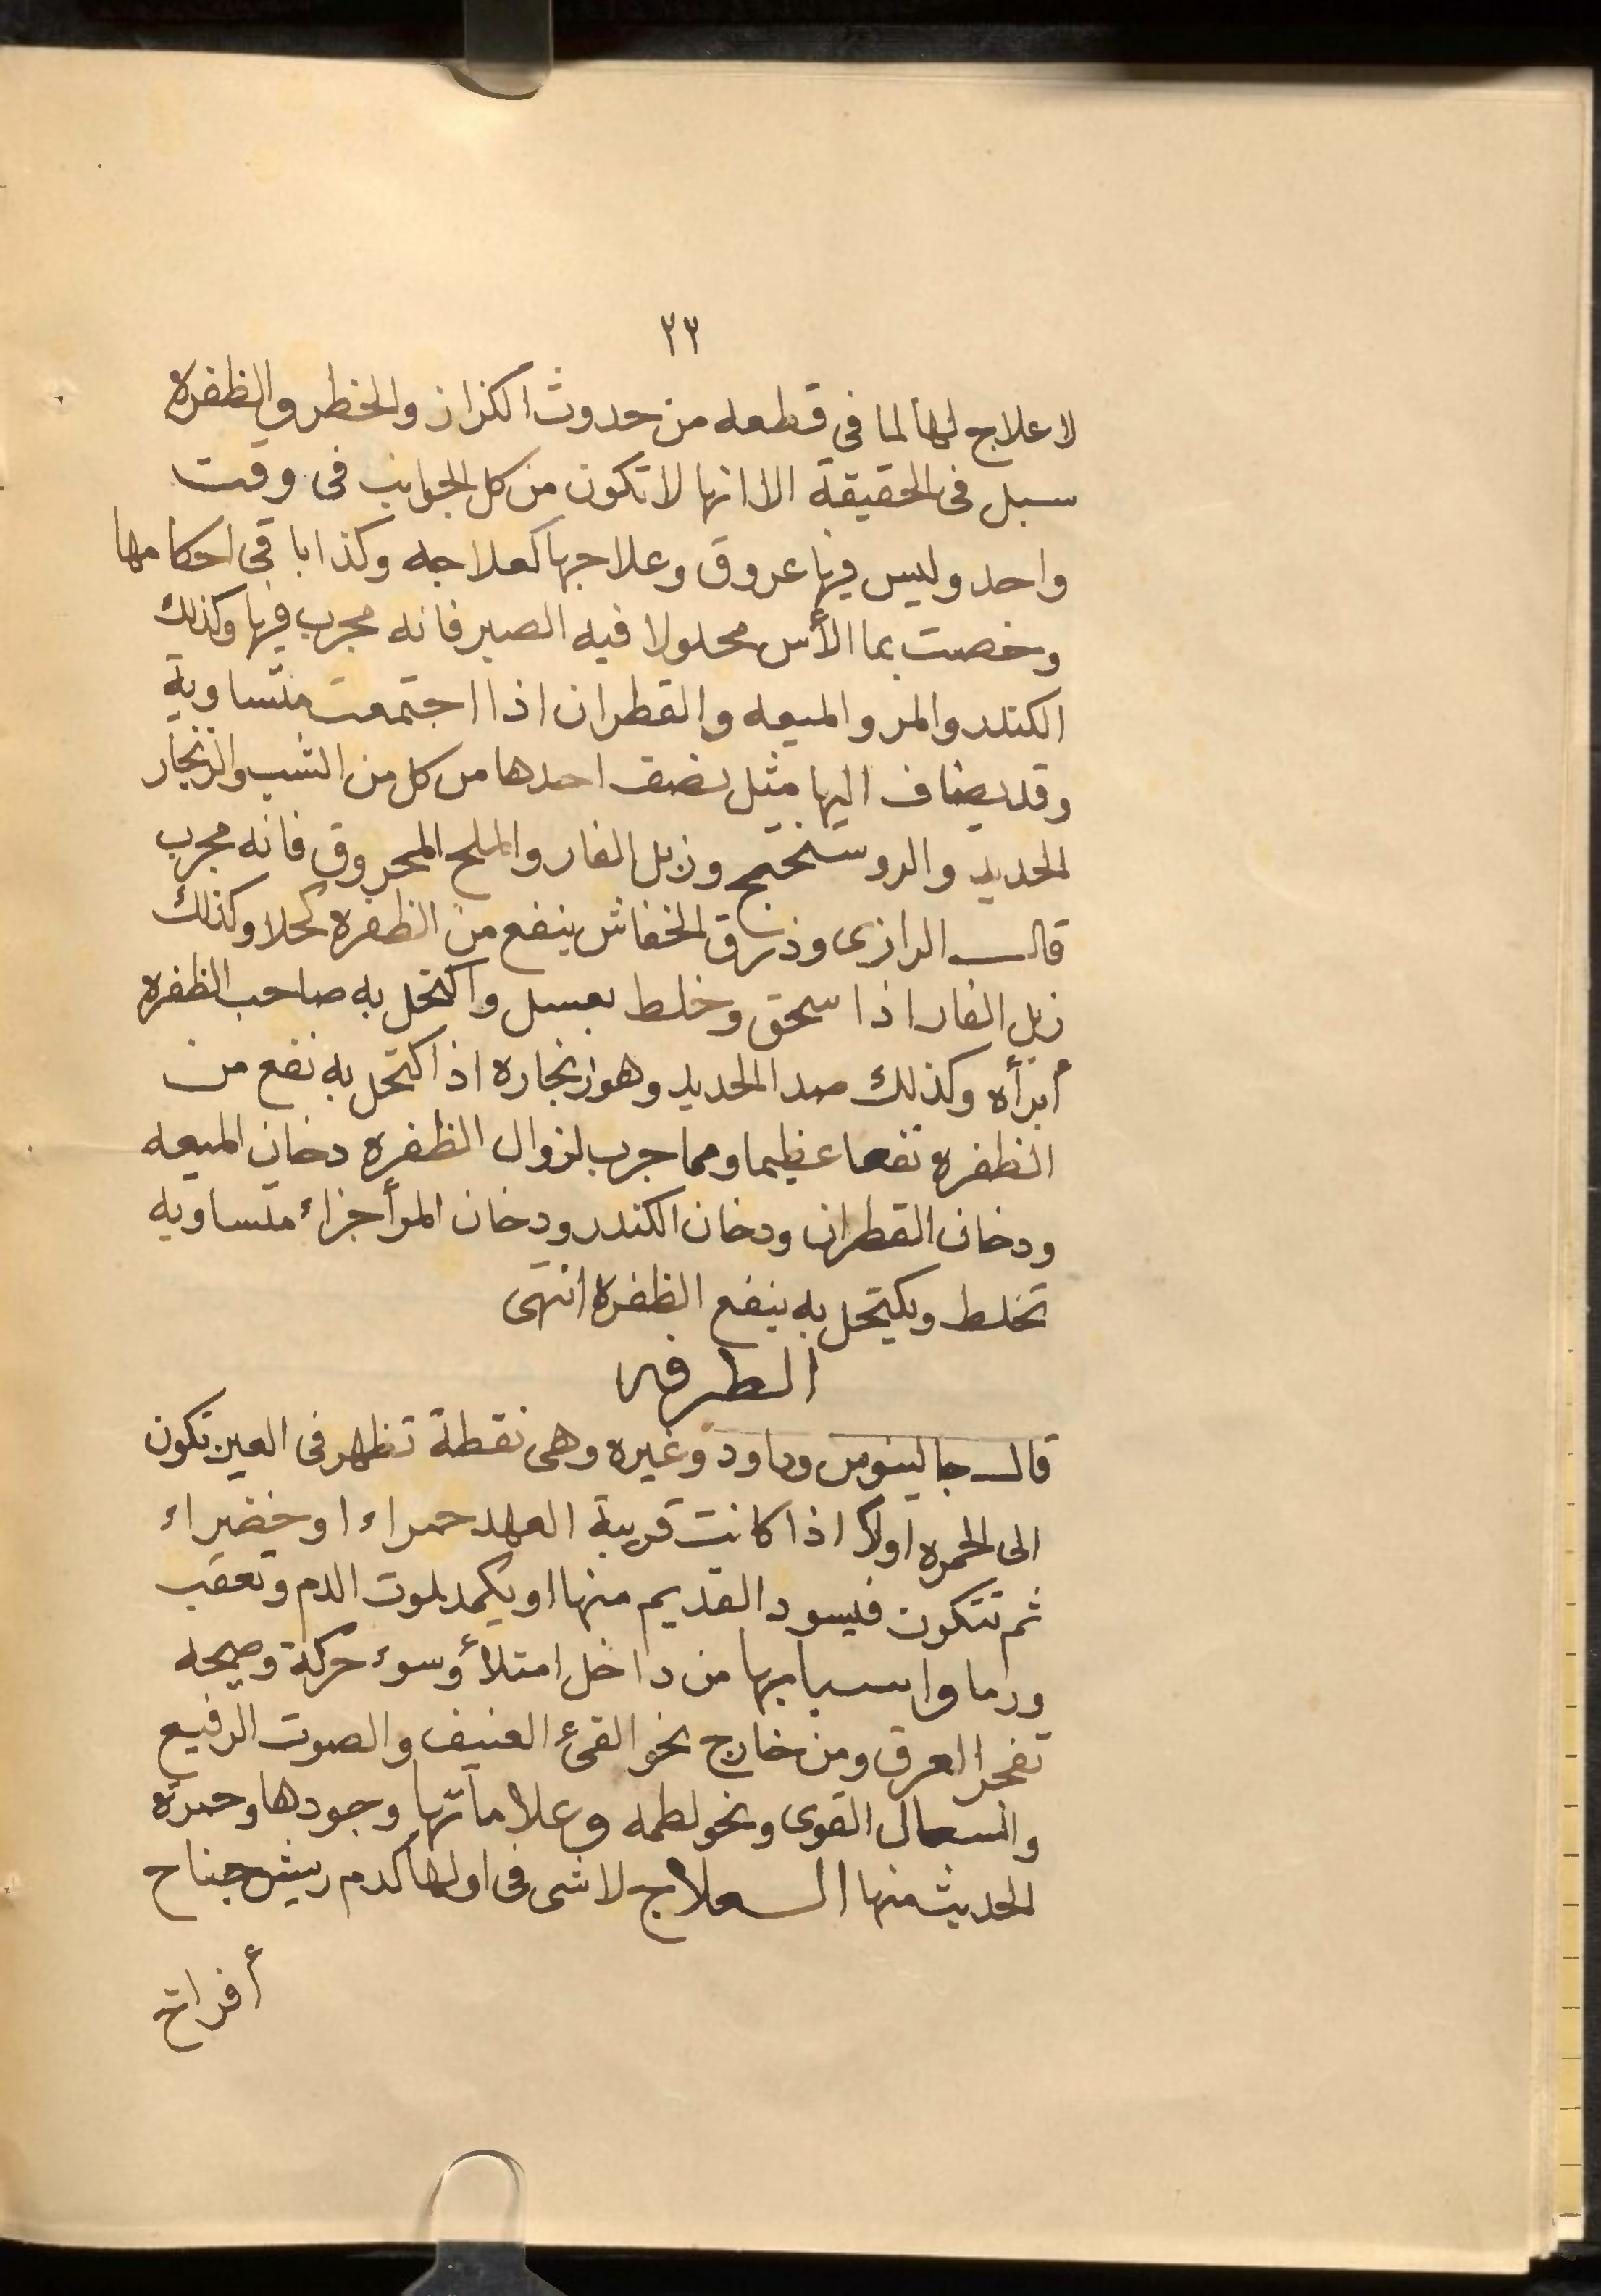 ٢٣
لا علاج لها لما فى قطعه من حدوث الكزاز والخطر والظفره
سبل فى الحقيقة الا انها لا تكون من كل الجوانب فى وقت
واحد وليس فيها عروق وعلاجها كعلاجه وكذا باقى احكامها
وخصت بما الأس محلولا فيه الصبر فانه مجرب فيها وكذلك
الكندر والمر والميعه والقطران اذا اجتمعت متساوية
وقد يضاف اليها مثل نصف احدها من كل من الشب والزنجار
الحديد والروسختج وزبل الفار والملح المحروق فانه مجرب
قال الرازى وذرق الخفاش ينفع من الظفره كحلا وكذلك
زبل الفار اذا سحق وخلط بعسل واكتحل به صاحب الظفره
أبرأه وكذلك صدا الحديد وهو زنجاره اذ اكتحل به نفع من
الظفره نفعا عظيما ومما جرب لزوال الظفره دخان الميعه
ودخان القطران ودخان الكندر ودخان المر أجزاء متساويه
تخلط ويكتحل به ينفع الظفره انتهى
الطرفه
قال جالينوس وداود وغيره وهى نقطة تظهر فى العين تكون
الى الحمره اولا اذا كانت قريبة العهد حمراء او خضراء
ثم تتكون فيسود القديم منها او يكمد لموت الدم وتعقب
ورما واسبابها من داخل امتلأ وسوء حركة وصيحه
تفجر العرق ومن خارج نحو القئ العنيف والصوت الرفيع
والسعال القوى ونحو لطمه وعلاماتها وجودها وحمرة
الحديث منها العلاج لا شى فى اولها كدم ريش جناح
أفراخ